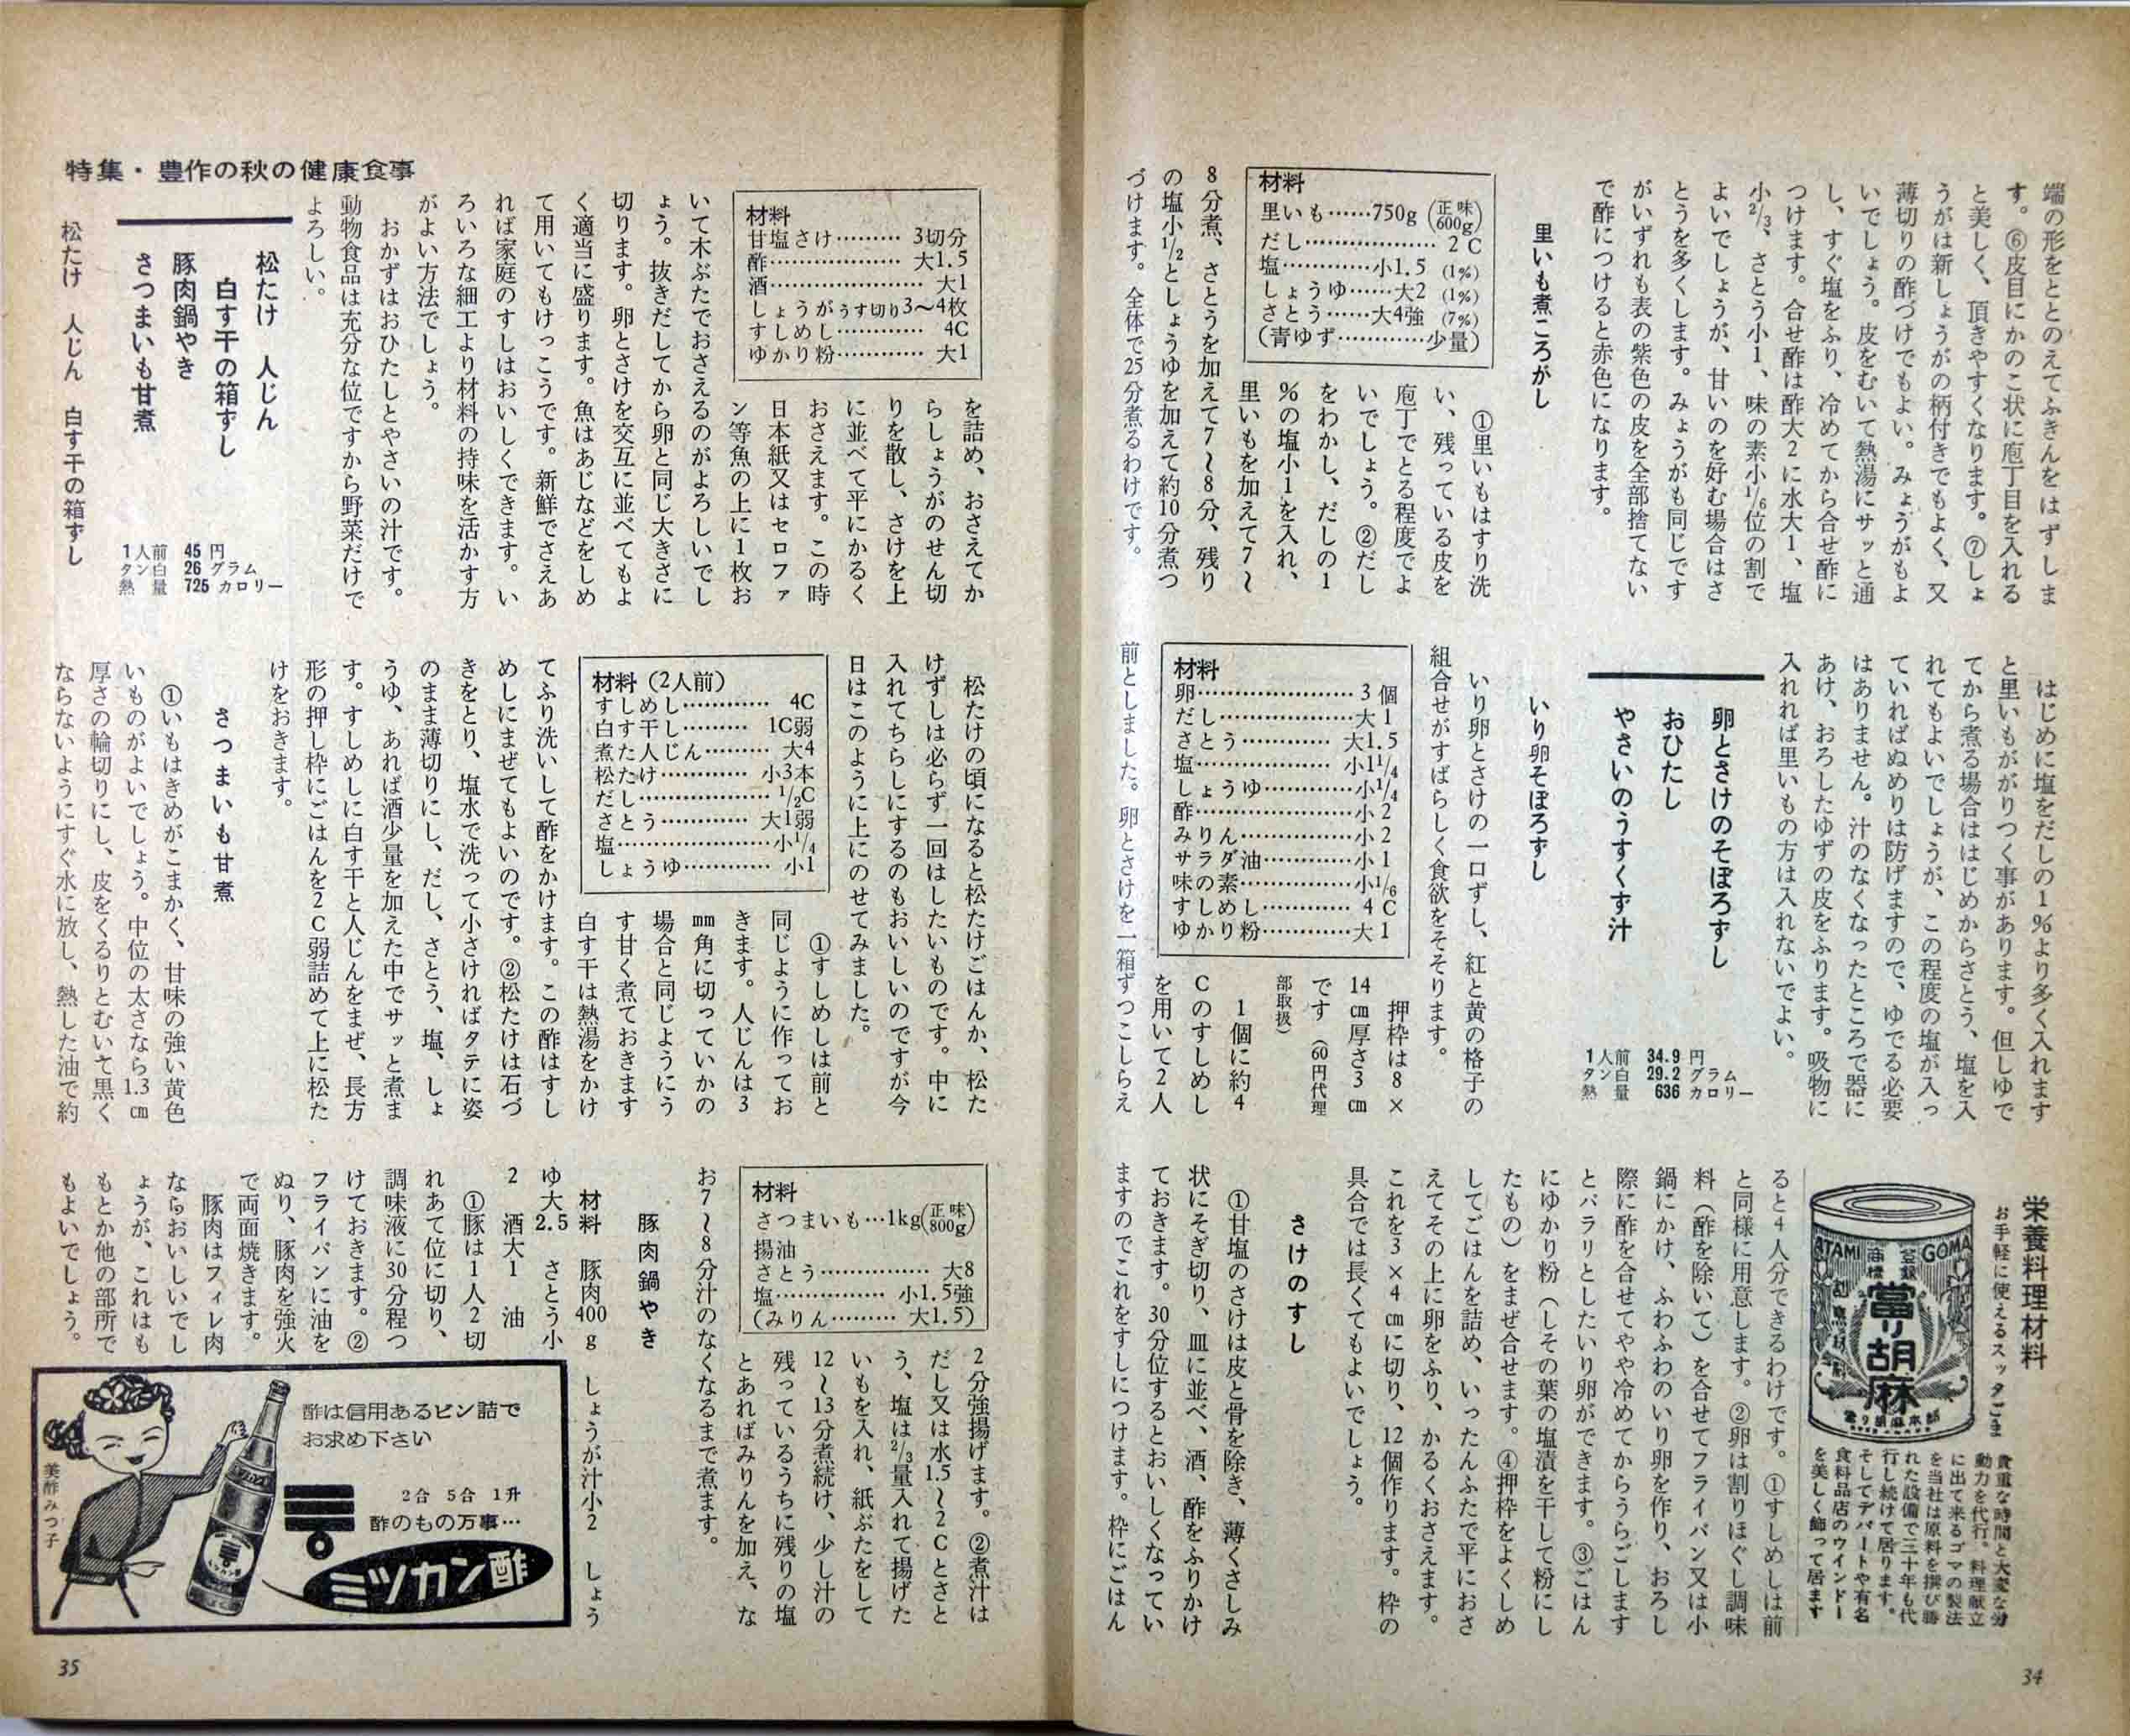 端の形をととのえてふきんをはずしま
す。⑥皮目にかのこ状に庖丁目を入れる
と美しく、頂きやすくなります。⑦しょ
うがは新しょうがの柄付きでもよく、又
薄切りの酢づけでもよい。みょうがもよ
いでしょう。皮をむいて熱湯にサッと通
し、すぐ塩をふり、冷めてから合せ酢に
つけます。合せ酢は酢大2に水大1、塩
小2/3、さとう小1、味の素小1/6位の割で
よいでしょうが、甘いのを好む場合はさ
とうを多くします。みょうがも同じです
がいずれも表の紫色の皮を全部捨てない
で酢につけると赤色になります。
里いも煮ころがし
材料
里いも……750g(正味600g)
だし………………2C
塩…………小1.5(1%)
しょうゆ……大2(1%)
さとう……大4強(7%)
(青ゆず…………少量)
①里いもはすり洗
い、残っている皮を
庖丁でとる程度でよ
いでしょう。②だし
をわかし、だしの1
%の塩小1を入れ、
里いもを加えて7〜
8分煮、さとうを加えて7〜8分、残り
の塩小1/2としょうゆを加えて約10分煮つ
づけます。全体で25分煮るわけです。
はじめに塩をだしの1%より多く入れます
と里いもががりつく事があります。但しゆで
てから煮る場合ははじめからさとう、塩を入
れてもよいでしょうが、この程度の塩が入っ
ていればぬめりは防げますので、ゆでる必要
はありません。汁のなくなったところで器に
あけ、おろしたゆずの皮をふります。吸物に
入れれば里いもの方は入れないでよい。
卵とさけのそぼろずし
おひたし
やさいのうすくず汁
1人前 34.9円
タン白 29.2グラム
熱量 636カロリー
いり卵そぼろずし
いり卵とさけの一口ずし、紅と黄の格子の
組合せがすばらしく食欲をそそります。
材料
卵…………………3個
だし………………大1
さとう…………大1.5
塩………………小1 1/4
しょうゆ…………小1/4
酢…………………小2
みりん……………小2
サラダ油…………小1
味の素……………小1/6
すしめし…………4C
ゆかり粉…………大1
押枠は8×
14cm厚さ3cm
です(60円代理
部取扱)
1個に約4
Cのすしめし
を用いて2人
前としました。卵とさけを一箱ずつこしらえ
ると4人分できるわけです。①すしめしは前
と同様に用意します。②卵は割りほぐし調味
料(酢を除いて)を合せてフライパン又は小
鍋にかけ、ふわふわのいり卵を作り、おろし
際に酢を合せてやや冷めてからうらごします
とパラリとしたいり卵ができます。③ごはん
にゆかり粉(しその葉の塩漬を干して粉にし
たもの)をまぜ合せます。④押枠をよくしめ
してごはんを詰め、いったんふたで平におさ
えてその上に卵をふり、かるくおさえます。
これを3×4cmに切り、12個作ります。枠の
具合では長くてもよいでしょう。
さけのすし
①甘塩のさけは皮と骨を除き、薄くさしみ
状にそぎ切り、皿に並べ、酒、酢をふりかけ
ておきます。30分位するとおいしくなってい
ますのでこれをすしにつけます。枠にごはん
栄養料理材料
お手軽に使えるスッタごま
ATAMI GOMA
商標
當り胡麻
當り胡麻本舗
貴重な時間と大変な労
動力を代行。料理献立
に出て来るゴマの製法
を当社は原料を撰び勝
れた設備で三十年も代
行し続けて居ります。
そしてデパートや有名
食料品店のウインドー
を美しく飾って居ます
34
特集・豊作の秋の健康食事
材料
甘塩さけ………3切分
酢………………大1.5
酒…………………大1
しょうがうす切り3〜4枚
すめし…………4C
ゆかり粉…………大1
を詰め、おさえてか
らしょうがのせん切
りを散し、さけを上
に並べて平にかるく
おさえます。この時
日本紙又はセロファ
ン等魚の上に1枚お
いて木ぶたでおさえるのがよろしいでし
ょう。抜きだしてから卵と同じ大きさに
切ります。卵とさけを交互に並べてもよ
く適当に盛ります。魚はあじなどをしめ
て用いてもけっこうです。新鮮でさえあ
れば家庭のすしはおいしくできます。い
ろいろな細工より材料の持味を活かす方
がよい方法でしょう。
おかずはおひたしとやさいの汁です。
動物食品は充分な位ですから野菜だけで
よろしい。
松たけ 人じん
白す干の箱ずし
豚肉鍋やき
さつまいも甘煮
1人前 45円
タン白 26グラム
熱量 725カロリー
松たけ 人じん 白す干の箱ずし
松たけの頃になると松たけごはんか、松た
けずしは必らず一回はしたいものです。中に
入れてちらしにするのもおいしいのですが今
日はこのように上にのせてみました。
材料(2人前)
すしめし…………4C
白す干し………1C弱
煮た人じん………大4
松たけ…………小3本
だし………………1/2C
さとう…………大1弱
塩…………………小1/4
しょうゆ…………小1
①すしめしは前と
同じように作ってお
きます。人じんは3
mm角に切っていかの
場合と同じようにう
す甘く煮ておきます
白す干は熱湯をかけ
てふり洗いして酢をかけます。この酢はすし
めしにまぜてもよいのです。②松たけは石づ
きをとり、塩水で洗って小さければタテに姿
のまま薄切りにし、だし、さとう、塩、しょ
うゆ、あれば酒少量を加えた中でサッと煮ま
す。すしめしに白す干と人じんをまぜ、長方
形の押し枠にごはんを2C弱詰めて上に松た
けをおきます。
さつまいも甘煮
①いもはきめがこまかく、甘味の強い黄色
いものがよいでしょう。中位の太さなら1.3cm
厚さの輪切りにし、皮をくるりとむいて黒く
ならないようにすぐ水に放し、熱した油で約
材料
さつまいも…1kg(正味800g)
揚油
さとう……………大8
塩……………小1.5強
(みりん………大1.5)
2分強揚げます。②煮汁は
だし又は水1.5〜2Cとさと
う、塩は2/3量入れて揚げた
いもを入れ、紙ぶたをして
12〜13分煮続け、少し汁の
残っているうちに残りの塩
とあればみりんを加え、な
お7〜8分汁のなくなるまで煮ます。
豚肉鍋やき
材料 豚肉400g しょうが汁小2 しょう
ゆ大2.5 さとう小
2 酒大1 油
①豚は1人2切
れあて位に切り、
調味液に30分程つ
けておきます。②
フライパンに油を
ぬり、豚肉を強火
で両面焼きます。
豚肉はフィレ肉
ならおいしいでし
ょうが、これはも
もとか他の部所で
もよいでしょう。
酢は信用あるビン詰で
お求め下さい
2合 5合 1升
酢のもの万事…
ミツカン酢
美酢みつ子
35